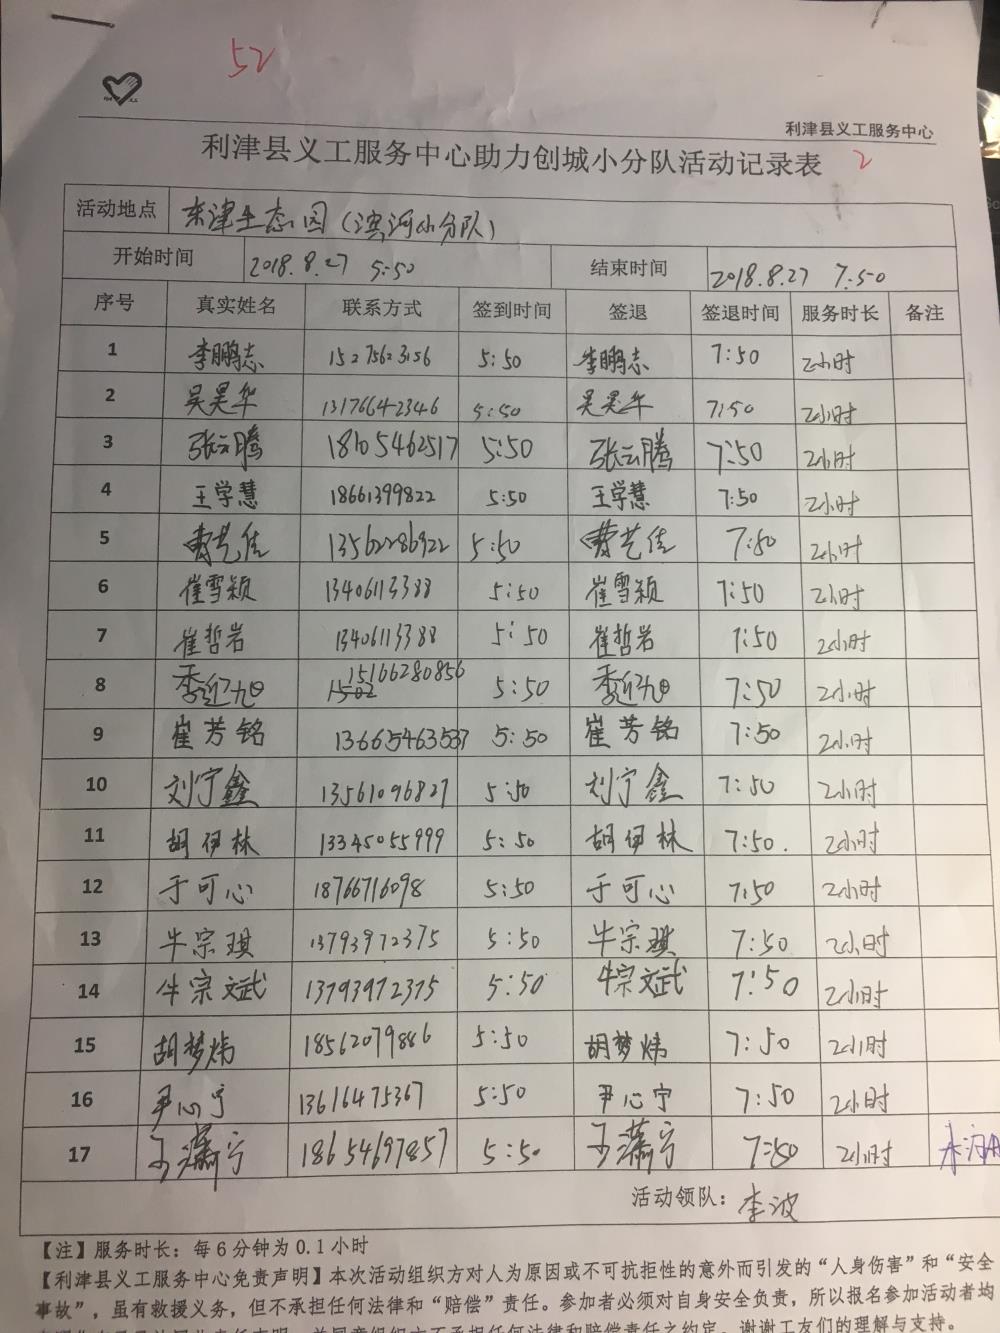 52
利津县义工服务中心
利津县义工服务中心助力创城小分队活动记录表 2
活动地点 东津生态园(滨河小分队)
开始时间 2018.8.27 5:50 结束时间 2018.8.27 7:50
序号 真实姓名 联系方式 签到时间 签退 签退时间 服务时长 备注
1 李鹏志 15275623156 5:50 李鹏志 7:50 2小时
2 吴昊华 13176642346 5:50 吴昊华 7:50 2小时
3 张云腾 18105462517 5:50 张云腾 7:50 2小时
4 王学慧 18661399822 5:50 王学慧 7:50 2小时
5 曹艺佳 13562286922 5:50 曹艺佳 7:50 2小时
6 崔雪颖 13406113388 5:50 崔雪颖 7:50 2小时
7 崔哲岩 13406113388 5:50 崔哲岩 7:50 2小时
8 15166280856 5:50 7:50 2小时
9 崔芳铭 13665463537 5:50 崔芳铭 7:50 2小时
10 刘宁鑫 13561096827 5:50 刘宁鑫 7:50 2小时
11 胡伊林 13345055999 5:50 胡伊林 7:50. 2小时
12 于可心 18766716098 5:50 于可心 7:50 2小时
13 牛宗琪 13793972375 5:50 牛宗琪 7:50 2小时
14 牛宗文斌 13793972375 5:50 牛宗文斌 7:50 2小时
15 胡梦炜 18562079886 5:50 胡梦炜 7:50 2小时
16 尹心宁 13616475367 5:50 尹心宁 7:50 2小时
17 王潇宁 18654697857 5:50 王潇宁 7:50 2小时
活动领队：李波
【注】服务时长：每6分钟为0.1小时
【利津县义工服务中心免责声明】本次活动组织方对人为原因或不可抗拒性的意外而引发的“人身伤害”和“安全
事故”，虽有救援义务，但不承担任何法律和“赔偿”责任。参加者必须对自身安全负责，所以报名参加活动者均
并同意组织方不承担任何法律和赔偿责任之约定。谢谢工友们的理解与支持。